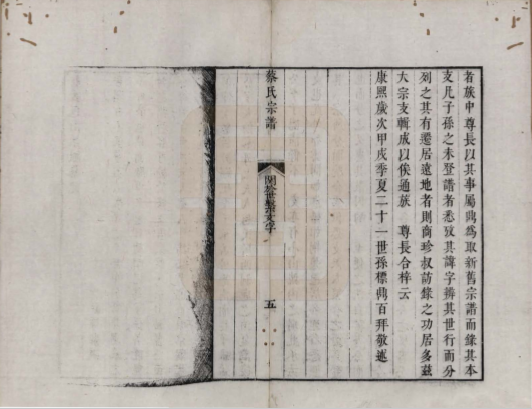 者族中尊長以其事屬典為取新舊宗譜而錄其本
支凡子孫之未登譜者悉攷其諱字辨其世行而分
列之其有遷居遠地者則商珍叔訪錄之功居多茲
大宗支輯成以俟通族 尊長合梓云
康熙歲次甲戌季夏二十一世孫標典百拜敬述
蔡氏宗譜
五